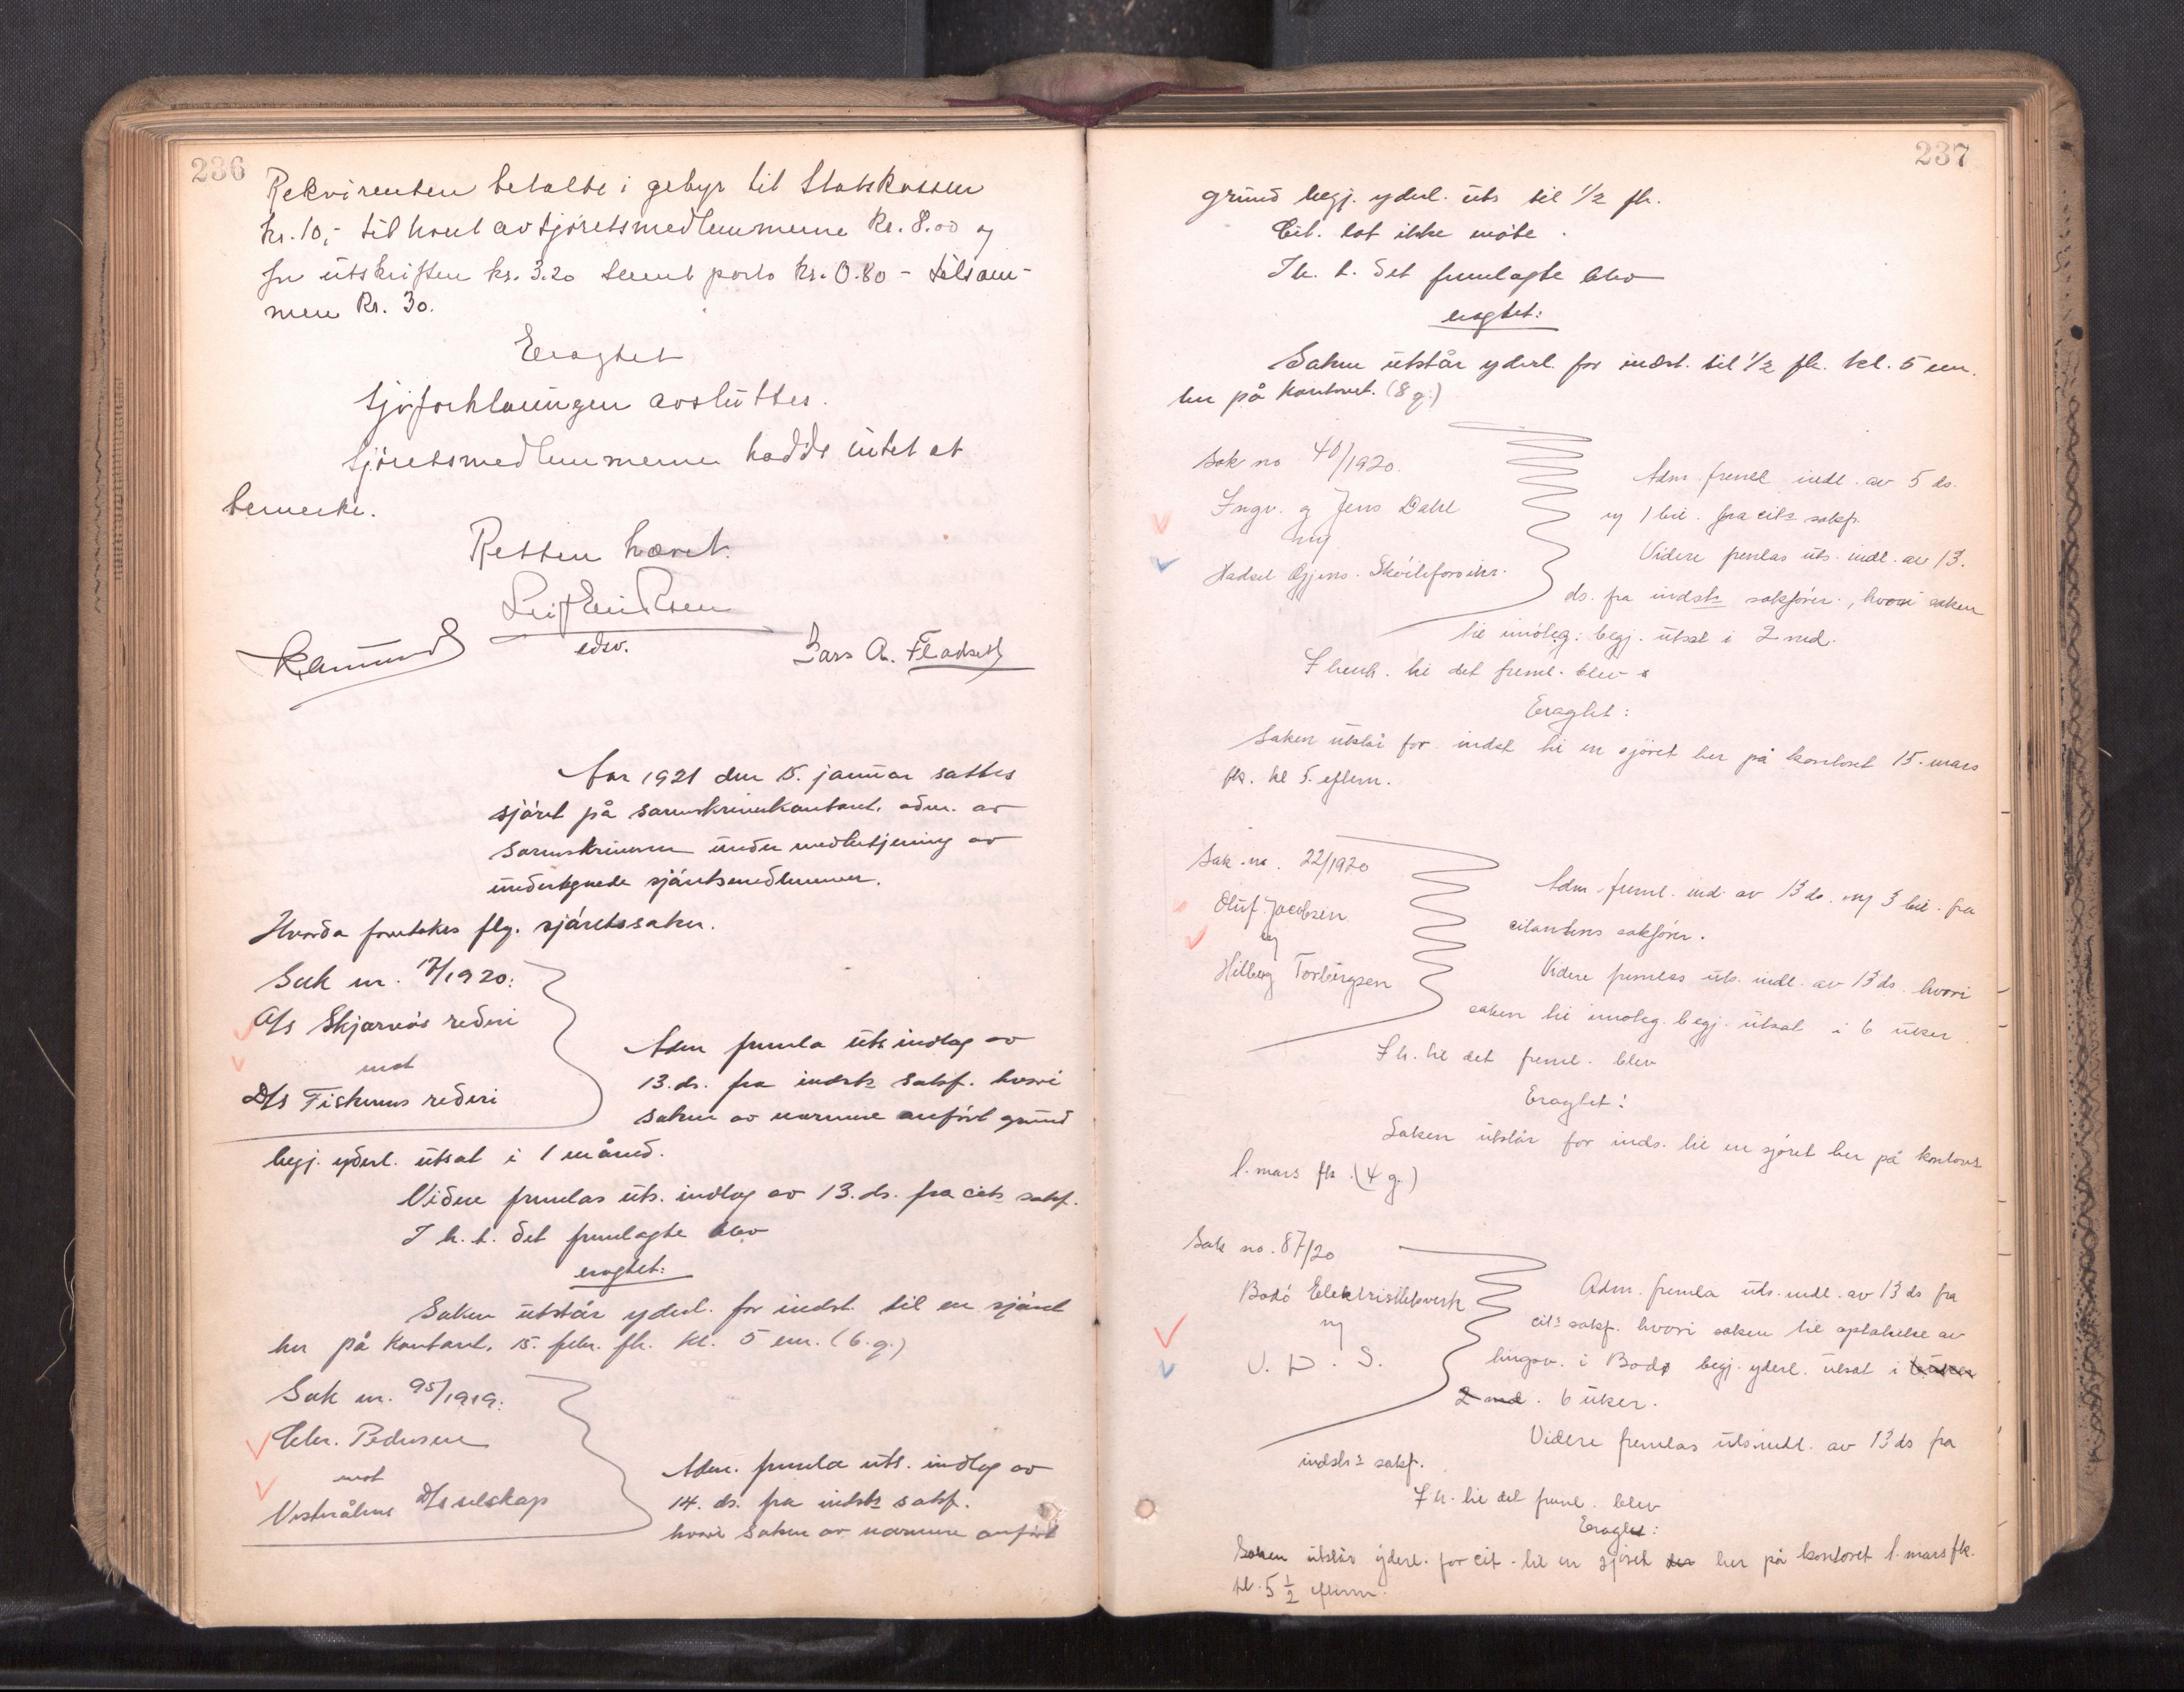 236
Rekvirenten betalte i gebyr til Statskassen
kr. 10,- til hvert av sjøretsmedlemmerne kr. 8.00 og
for utskriften kr. 3.20 samt porto kr. 0.80 - tilsam-
men kr. 30.
Eragtet
Sjøforklaringen avsluttes.
Sjøretsmedlemmerne hadde intet at
bemerke.
Retten hævet.
Leif Eriksen
edsv.
Lars A. Fladseth
Aar 1921 den 15. januar sattes
sjøret på sorenskriverkontoret, adm. av
sorenskriveren under medbetjening av
undertegnede sjøretsmedlemmer.
Hvorda foretokes flg. sjøretssaker.
Sak nr. 17/1920:
A/s Skjærvøs rederi
mot
D/s Fiskernes rederi
Adm fremla uts. indlag av
13. ds. fra indst's sakf. hvori
saken av nærmere anført grund
begj. yderl. utsat i 1 måned.
Videre fremlas uts. indlag av 13. ds. fra cit's sakf.
I h. t. det fremlagte blev
eragtet:
Saken utstår yderl. for indst. til en sjøret
her på kontoret. 15. febr. fk. kl. 5 em. (6. g.)
Sak nr. 95/1919:
Chr. Pedersen
mot
Vesterålens D/s selskap
Adm. fremla uts. indlag av
14. ds. fra indst's sakf.
hvori saken av nærmere anført
237
grund begj. yderl. uts til 1/2 fk.
Cit. lot ikke møte.
I h. t. det fremlagte blev
eragtet:
Saken utstår yderl. for indst. til 1/2 fk. kl. 5 em.
her på kontoret. (8 g.)
Sak no 40/1920.
Ingv. og Jens Dahl
mj
Hadsel Gjens. Sköiteforsikr.
Adm. freml indl. av 5 ds.
mj 1 bil. fra cit's sakf.
Videre fremlas uts. indl. av 13.
ds. fra indst's sakfører, hvori saken
til imøteg. begj. utsat i 2 md.
I henh. til det freml. blev
Eragtet:
Saken utstår for indst til en sjöret her på kontoret 15. mars
fk. kl 5. eftem.
Sak no. 22/1920
Oluf Jacobsen
mj
Hilberg Torbergsen
Adm. freml. ind. av 13 ds. mj 3 bil. fra
citantens sakfører.
Videre fremlas uts. indl. av 13 ds. hvori
saken til imøteg. begj. utsat i 6 uker.
I h. til det freml. blev
Eragtet:
Saken utstår for inds. til en sjöret her på kontoret
1. mars fk. (4 g.)
Sak no. 87/20
Bodö Elektrisitetsverk
mj
V. D. S.
Adm. fremla uts. indl. av 13 ds fra
cit's sakf. hvori saken til optakelse av
tingsv. i Bodø begj. yderl. utsat i 6 uker
2 md. 6 uker.
Videre fremlas uts. indl. av 13 ds fra
indst's sakf.
I h. til det freml. blev
Eragtet:
Saken utstår yderl. for cit. til en sjöret der her på kontoret 1. mars fk.
kl. 5 1/2 eftem.